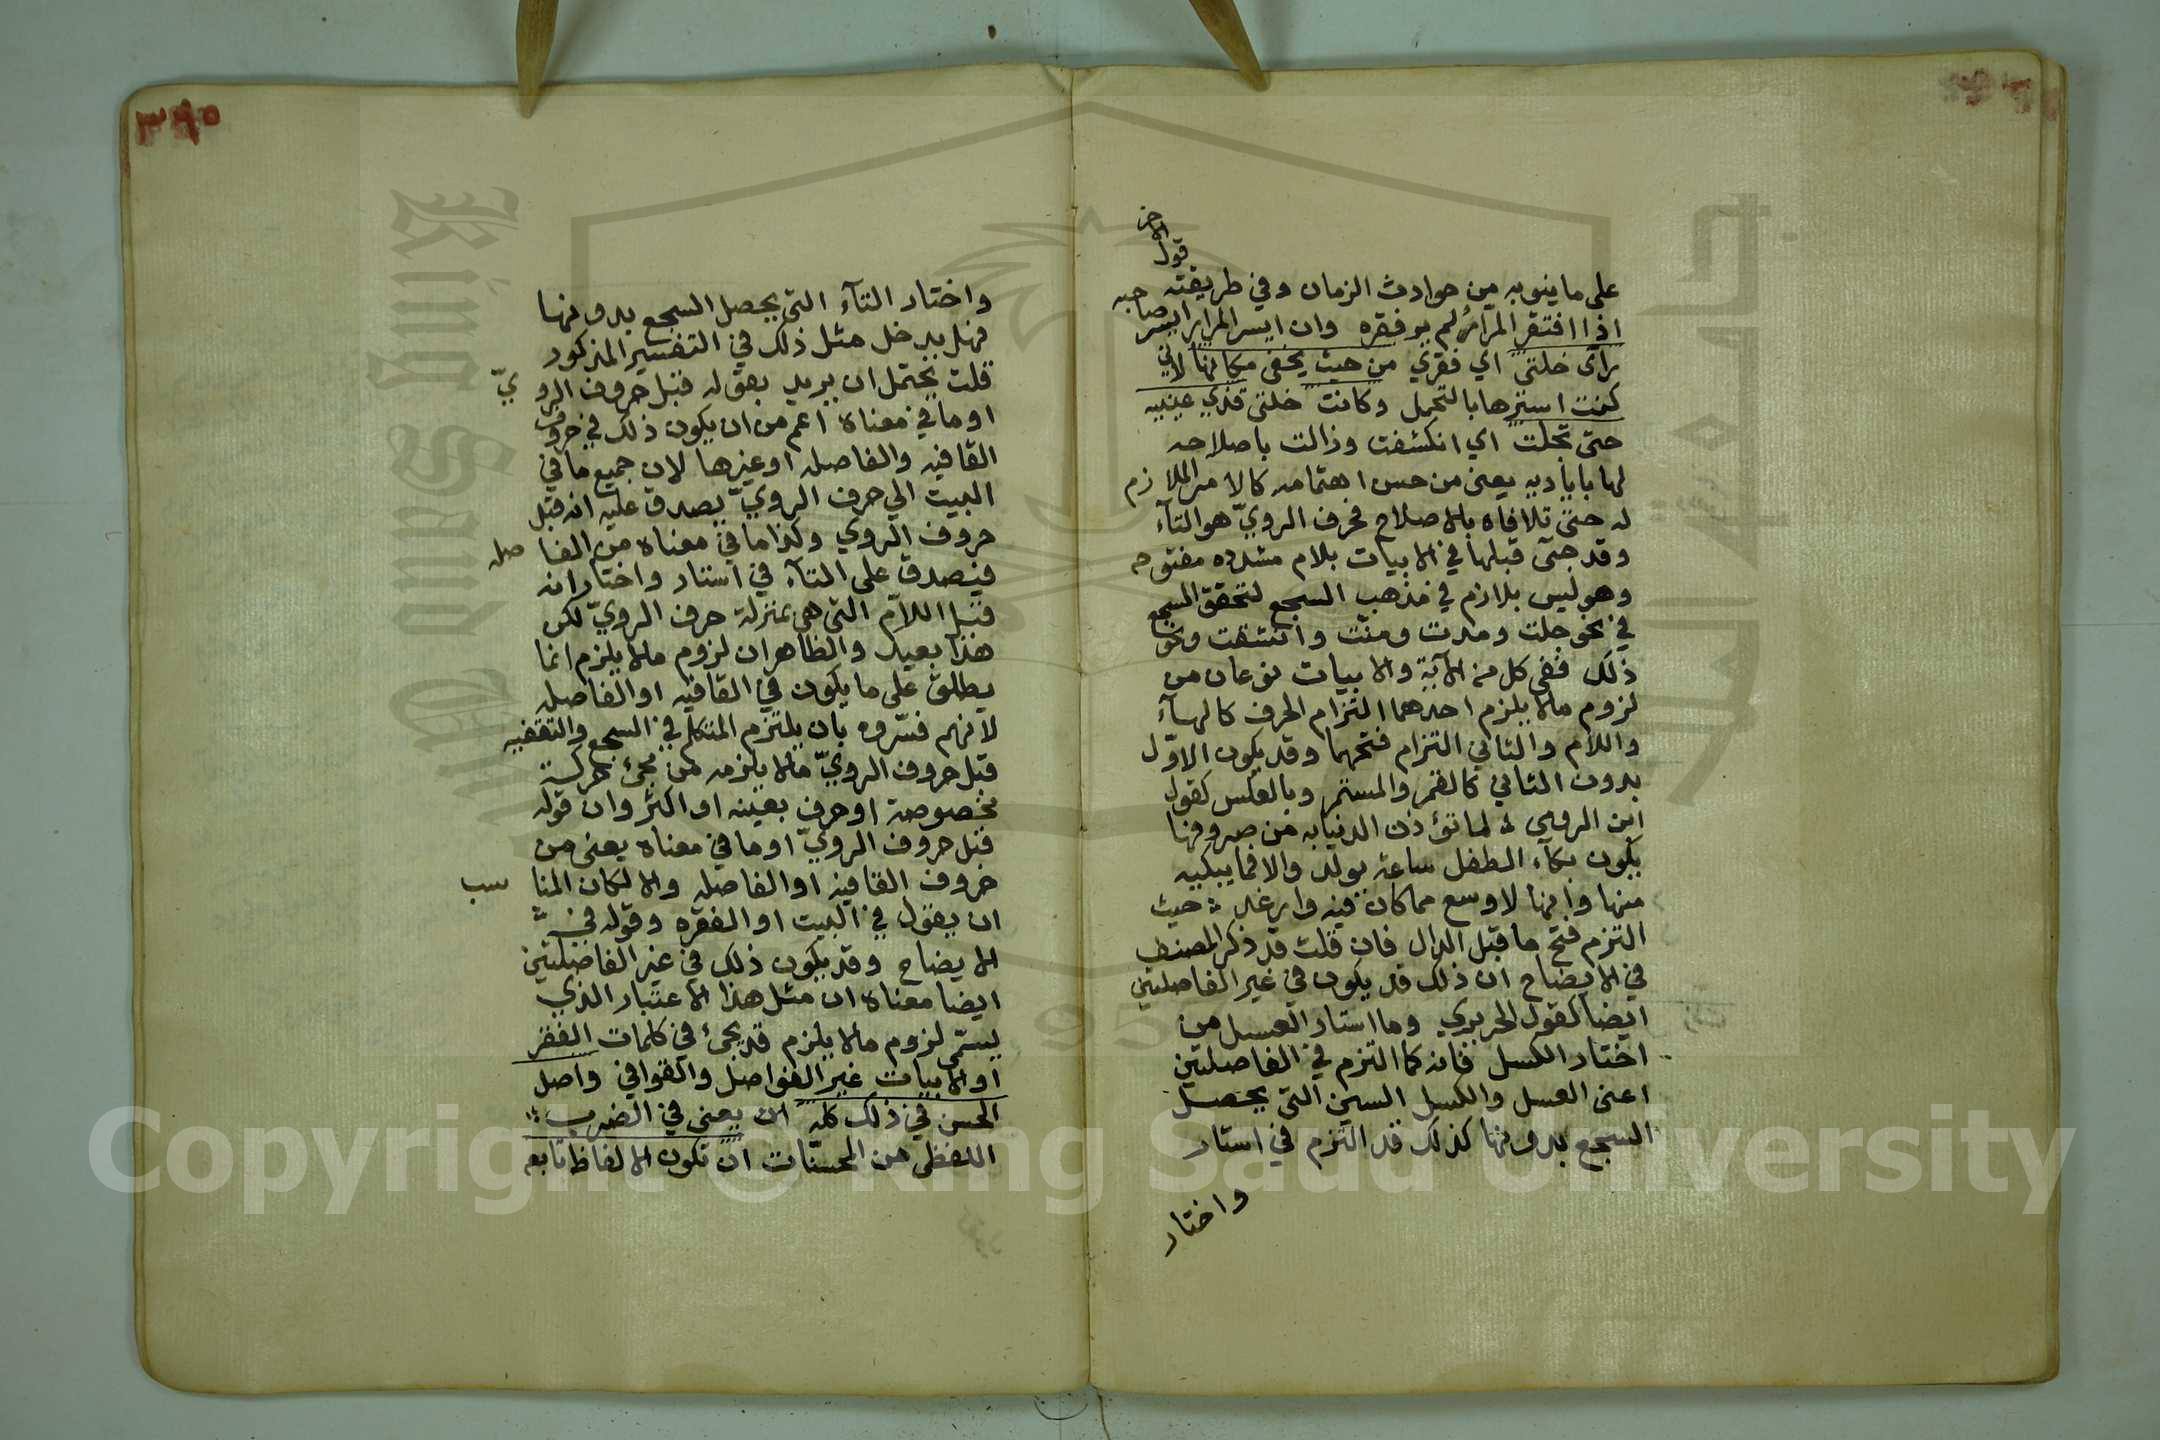 على ما ينوبه من حوادث الزمان وفي طريقته قول الاخر
اذا افتقر المرار لم ير فقره وان ايسر المرار ايسر صاحبه
رأى خلتي اي فقري من حيث يخفى مكانها لاني
كنت استرها بالتجمل وكانت خلتي قذي عينيه
حتى تجلت اي انكشفت وزالت باصلاحه
لها باياديه يعنى من حسن اهتمامه كالامر الملازم
له حتى تلافاه بالاصلاح فحرف الرويّ هو التآء
وقد جئ قبلها في الابيات بلام مشدده مفتوحه
وهو ليس بلازم في مذهب السجع لتحقق السجع
في نحو جلت ومدت ومنّت وانشقت ونحو
ذلك ففي كل من الآية والابيات نوعان من
لزوم مالا يلزم احدهما التزام الحرف كالهآء
واللام والثاني التزام فتحهما وقد يكون الاوّل
بدون الثاني كالقمر والمستمر وبالعكس كقول
ابن الرومي لما تؤذن الدنيا به من صروفها
يكون بكآء الطفل ساعة يولد والا فما يبكيه
منها وانها لاوسع مما كان فيه وارغد حيث
التزم فتح ما قبل الدال فان قلت قد ذكر المصنف
في الايضاح ان ذلك قد يكون في غير الفاصلتين
ايضا كقول الحريري وما استار العسل من
اختار الكسل فانه كما التزم في الفاصلتين
اعنى العسل والكسل السين التى يحصل
السجع بدونها كذلك قد التزم في استار
واختار
٣٩٠
واختار التآء التى يحصل السجع بدونها
فهل يدخل مثل ذلك في التفسير المذكور
قلت يحتمل ان يريد بقوله قبل حروف الرويّ
او ما في معناه اعم من ان يكون ذلك في حروف
القافيه والفاصله او غيرها لان جميع ما في
البيت الى حرف الرويّ يصدق عليه انه قبل
حروف الروي وكذا ما في معناه من الفاصله
فيصدق على التآء في استار واختار انه
قبل اللام التى هى بمنزلة حرف الرويّ لكن
هذا بعيد والظاهر ان لزوم مالا يلزم انما
يطلق على ما يكون في القافيه او الفاصله
لانهم فسّروه بان يلتزم المتكلم في السجع والتقفيه
قبل حروف الرويّ مالا يلزمه من مجئ حركة
مخصوصة او حرف بعينه او اكثر وان قوله
قبل حروف الرويّ او ما في معناه يعنى من
حروف القافيه او الفاصله والا لكان المناسب
ان يقول في البيت او الفقره وقوله في
الايضاح وقد يكون ذلك في غير الفاصلتين
ايضا معناه ان مثل هذا الاعتبار الذي
يسمّى لزوم مالا يلزم قد يجئ في كلمات الفقر
او الابيات غير الفواصل والقوافي واصل
الحسن في ذلك كله ان يعنى في الضرب
اللفظي من المحسنات ان تكون الالفاظ تابعه
Copyright © King Saud University